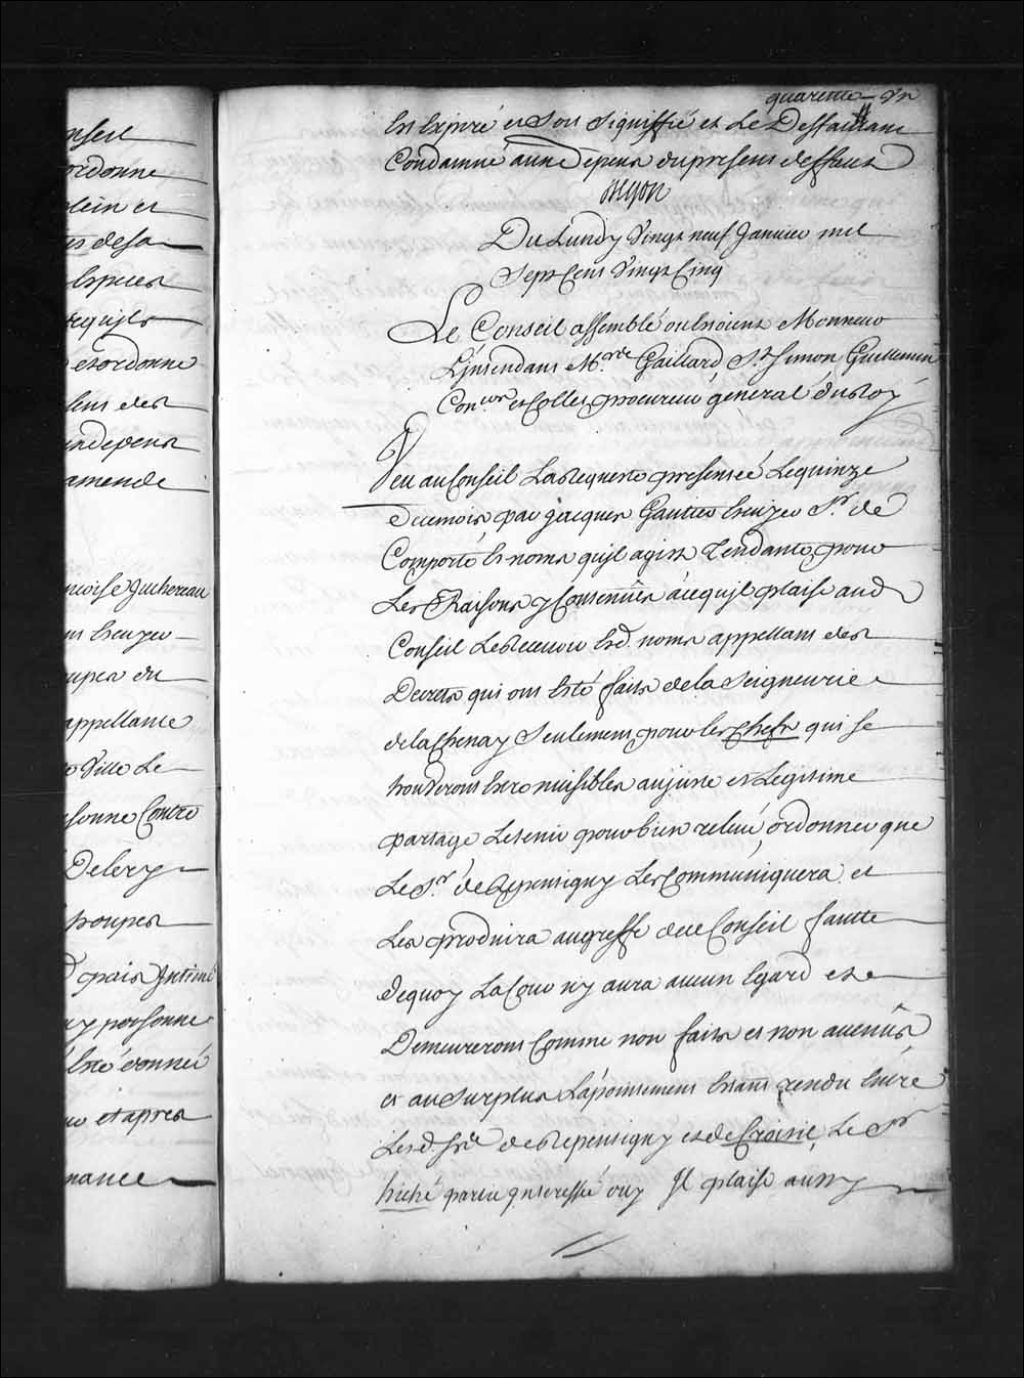 nseil
ordonne
plein et
ts desa
Especes
requise
et ordonne
lens des
and depens
amende
ncoise Juchereau
ns Escuyer
upes du
appellante
Ville Le
sonne Contre
Delery
troupes
d pais Intimé
y personne
Esté donné
et apres
nance
quarente Un
Est Expiré et soit signiffié et Le Deffaillant
Condamné aux depens du present deffaut
Begon
Du Lundy Vingt neuf Janvier mil
Sept Cens Vingt Cinq
Le Conseil assemblé ou Estoient Monsieur
L'jntendant Mrs. Gaillard St. Simon Guillemin
Coners et Collet procureur general du Roy
Veu au Conseil La Requeste presentée Le quinze
du mois par jacques Gautier Escuyer Sr. de
Comporté Es noms qu'jl agist Tendante pour
Les Raisons y Contenües a ce qu'jl plaise aud
Conseil Le Recevoir Esd. noms appellant des
Decrets qui ont Esté faits de la Seigneurie
de la Chenay Seulement pour les Chefs qui se
trouveront Estre nuisibles au juste et Legitime
partage Le tenir pour bien relevé, ordonner que
Le Sr. de Repentigny Les Communiquera et
Les produira au greffe de ce Conseil fautte
de quoy La Cour n'y aura aucun Egard et
Demeureront Comme non faits et non avenüs
et au Surplus L'apointement Estant rendu Entre
Lesd. Srs. de Repentigny et de Croisil, Le Sr
hiché partie jnteressée ouy Jl plaise aussy